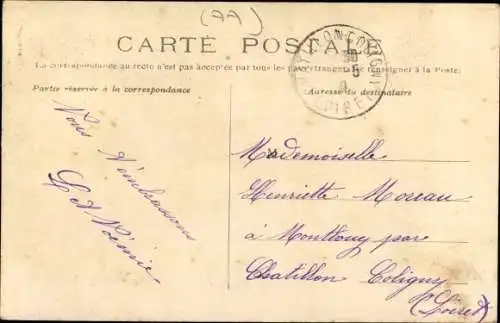 (AA)
CARTE POSTALE
La correspondance au recto n'est pas acceptée par tous les pays étrangers. Se renseigner à la Poste
Partie réservée à la correspondance
Adresse du destinataire
Vous
Mademoiselle
Henriette Moreau
à Montbouy par
Chatillon Coligny
(Loiret)